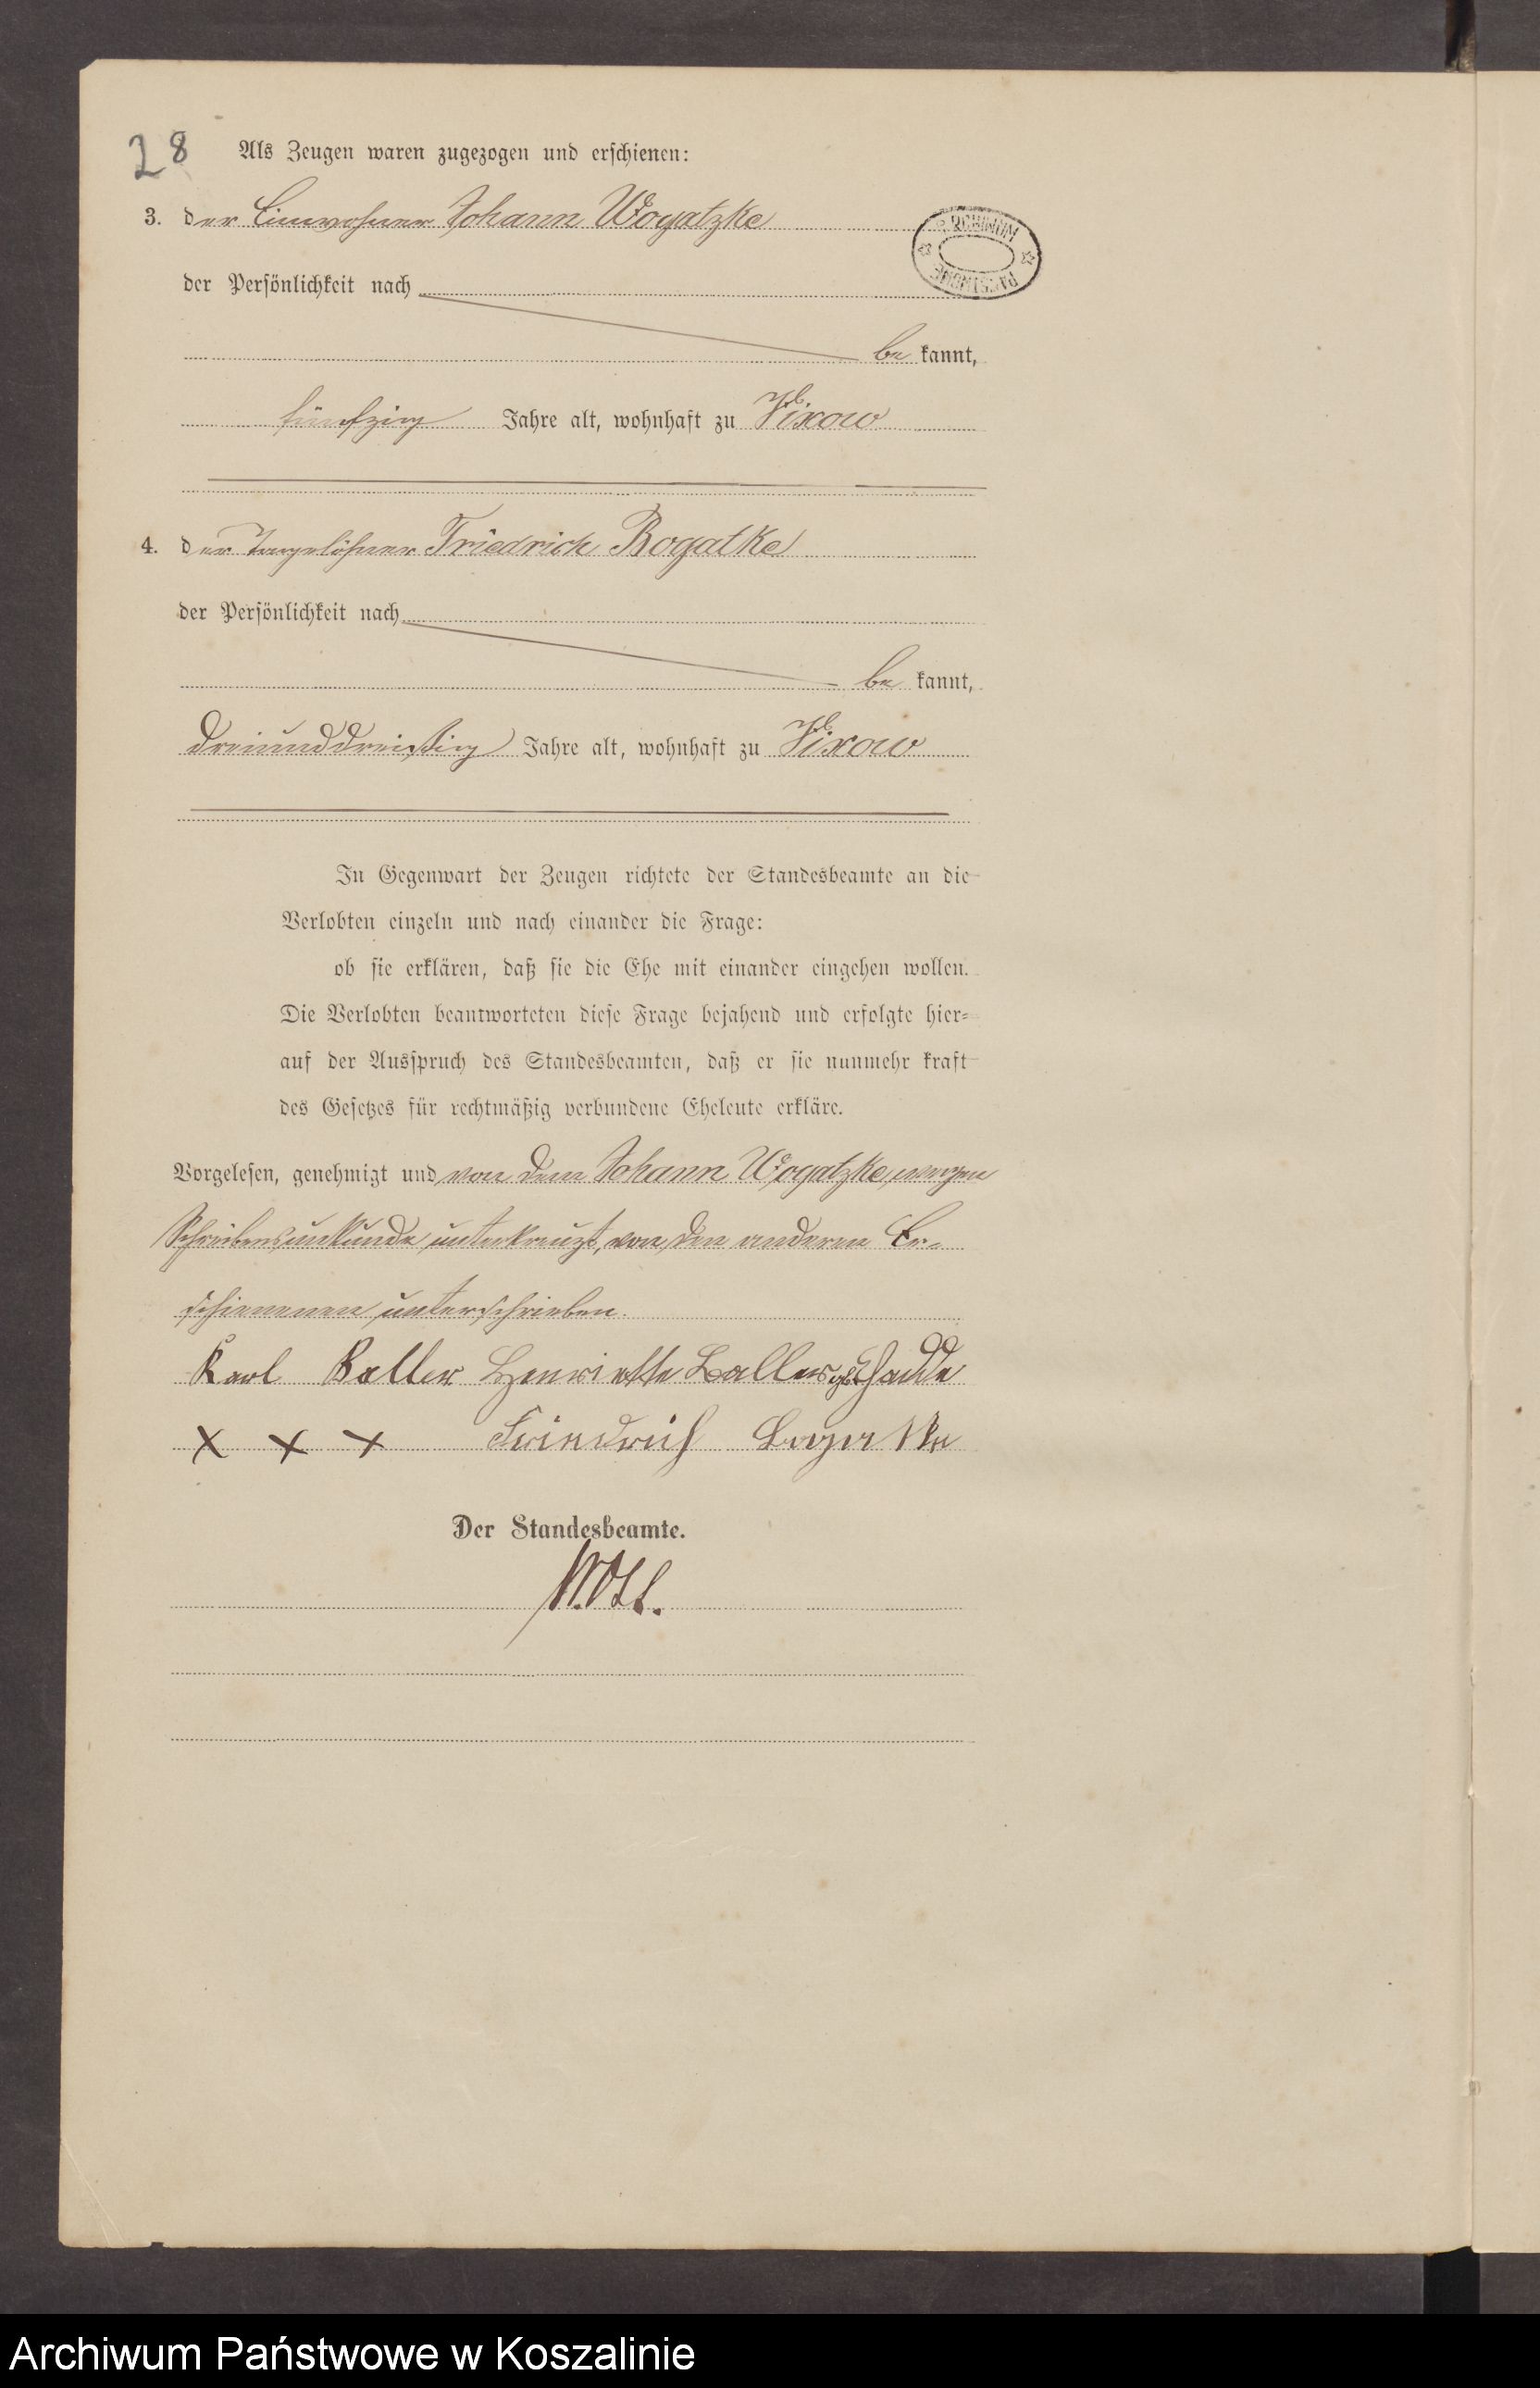 28
Als Zeugen waren zugezogen und erschienen:
3. der Einwohner Johann Wogatzke
ARCHIWUM PAŃSTWOWE
der Persönlichkeit nach
be kannt,
fünfzig Jahre alt, wohnhaft zu Vixow
4. der Tagelöhner Friedrich Bogatke
der Persönlichkeit nach
be kannt,
dreiunddreißig Jahre alt, wohnhaft zu Vixow
In Gegenwart der Zeugen richtete der Standesbeamte an die
Verlobten einzeln und nach einander die Frage:
ob sie erklären, daß sie die Ehe mit einander eingehen wollen.
Die Verlobten beantworteten diese Frage bejahend und erfolgte hier-
auf der Ausspruch des Standesbeamten, daß er sie nunmehr kraft
des Gesetzes für rechtmäßig verbundene Eheleute erkläre.
Vorgelesen, genehmigt und von dem Johann Wogatzke, wegen
Schreibensunkunde unterkreuzt, von den anderen Er-
schienenen unterschrieben.
Karl Baller Henriette Baller geb.
X X X Friedrich Bogatke
Der Standesbeamte.
Archiwum Państwowe w Koszalinie